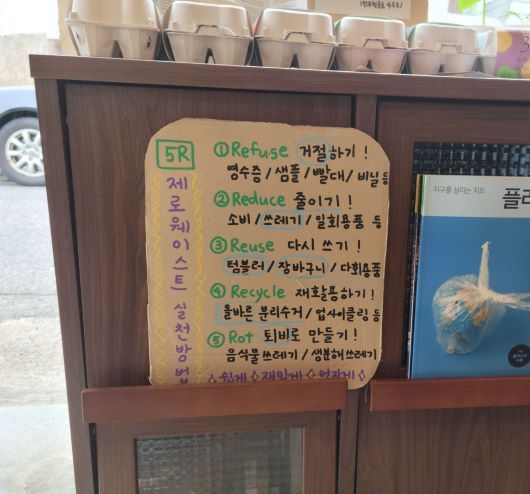 5R
제로웨이스트 실천방법
①Refuse 거절하기!
영수증/샘플/빨대/비닐등
②Reduce 줄이기!
소비/쓰레기/일회용품 등
③Reuse 다시 쓰기!
텀블러/장바구니/다회용품
④Recycle 재활용하기!
올바른 분리수거/업사이클링 등
⑤Rot 퇴비로 만들기!
음식물쓰레기/생분해쓰레기
◇쉽게◇재밌게◇멋지게◇
지구를 살리는 지도
플라